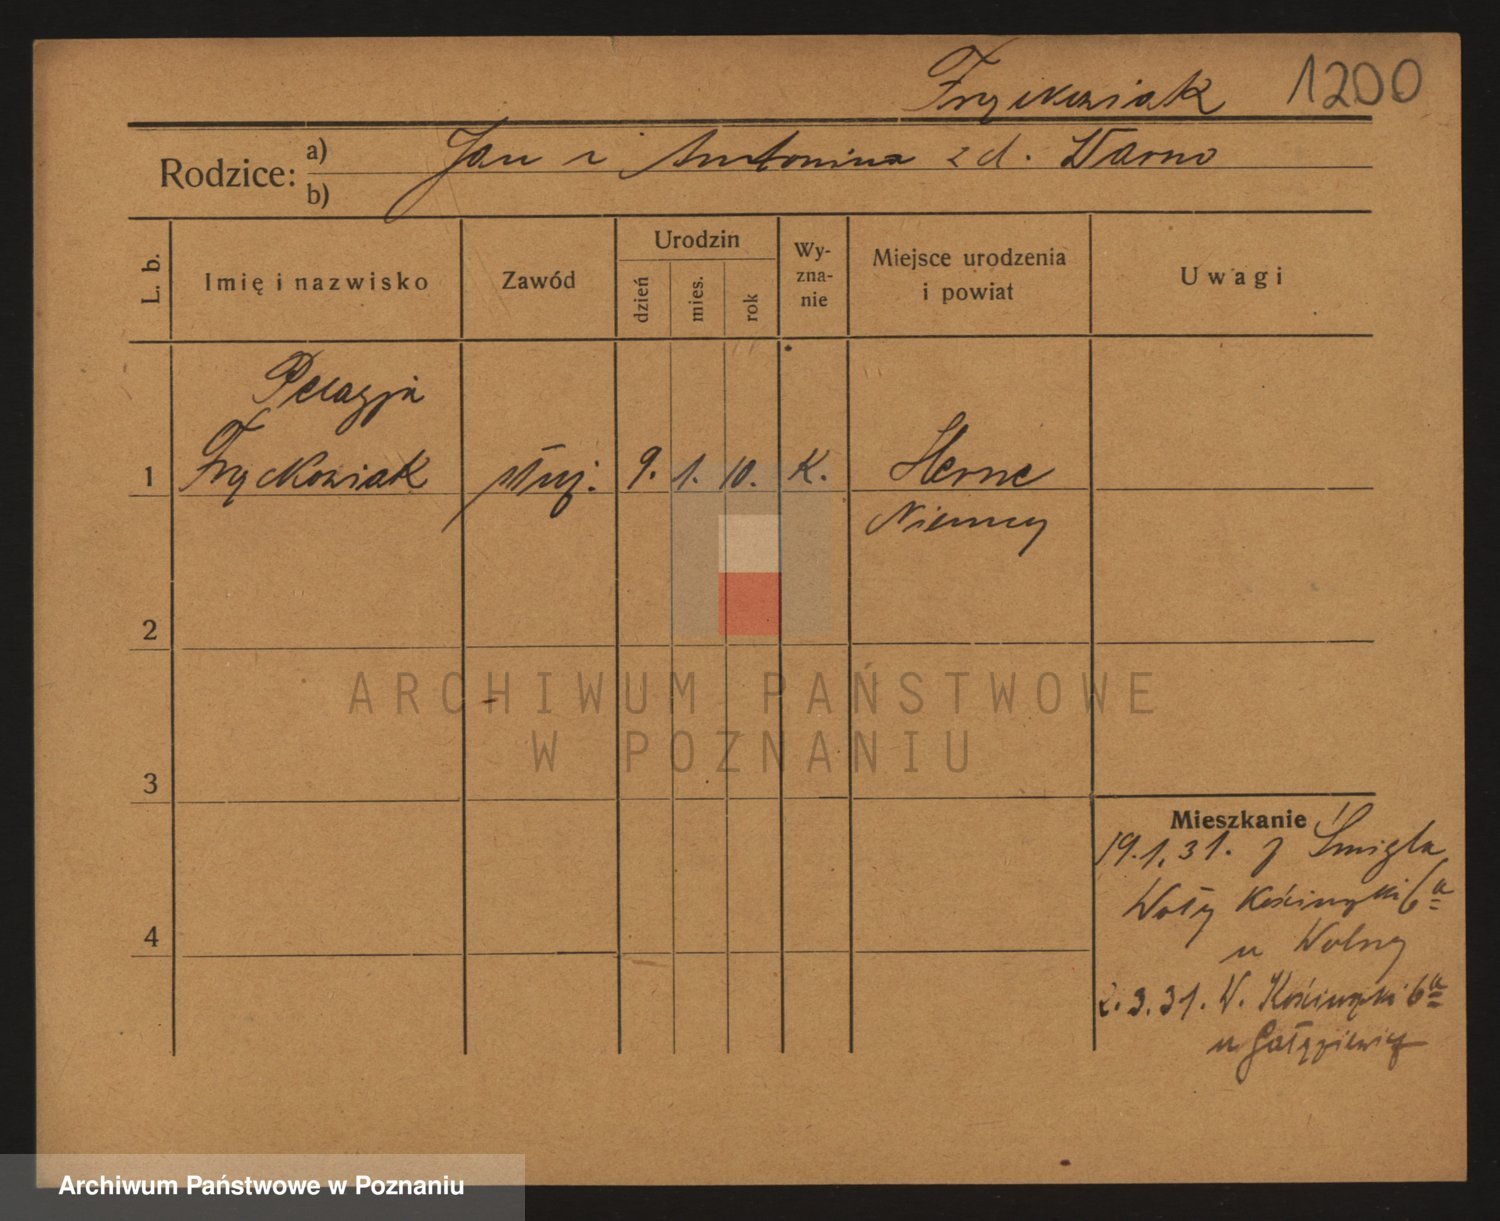 Fryckowiak 1200
Rodzice:
a) Jan i Antonina z d. Warno
b)
L. b.
Imię i nazwisko
Zawód
Urodzin
dzień
mies.
rok
Wy-
zna-
nie
Miejsce urodzenia
i powiat
Uwagi
Pelagja
1 Fryckowiak służ. 9. 1. 10. K. Herne
Niemcy
2
ARCHIWUM PAŃSTWOWE
W POZNANIU
3
Mieszkanie
19.1.31. z Śmigla
Wały Kościuszki 6a
u Wolny
2.3.31. W. Kościuszki 6a
u
4
Archiwum Państwowe w Poznaniu